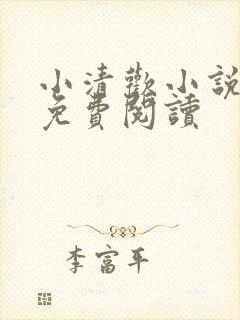 小清歡小說
免費閱讀
李富平